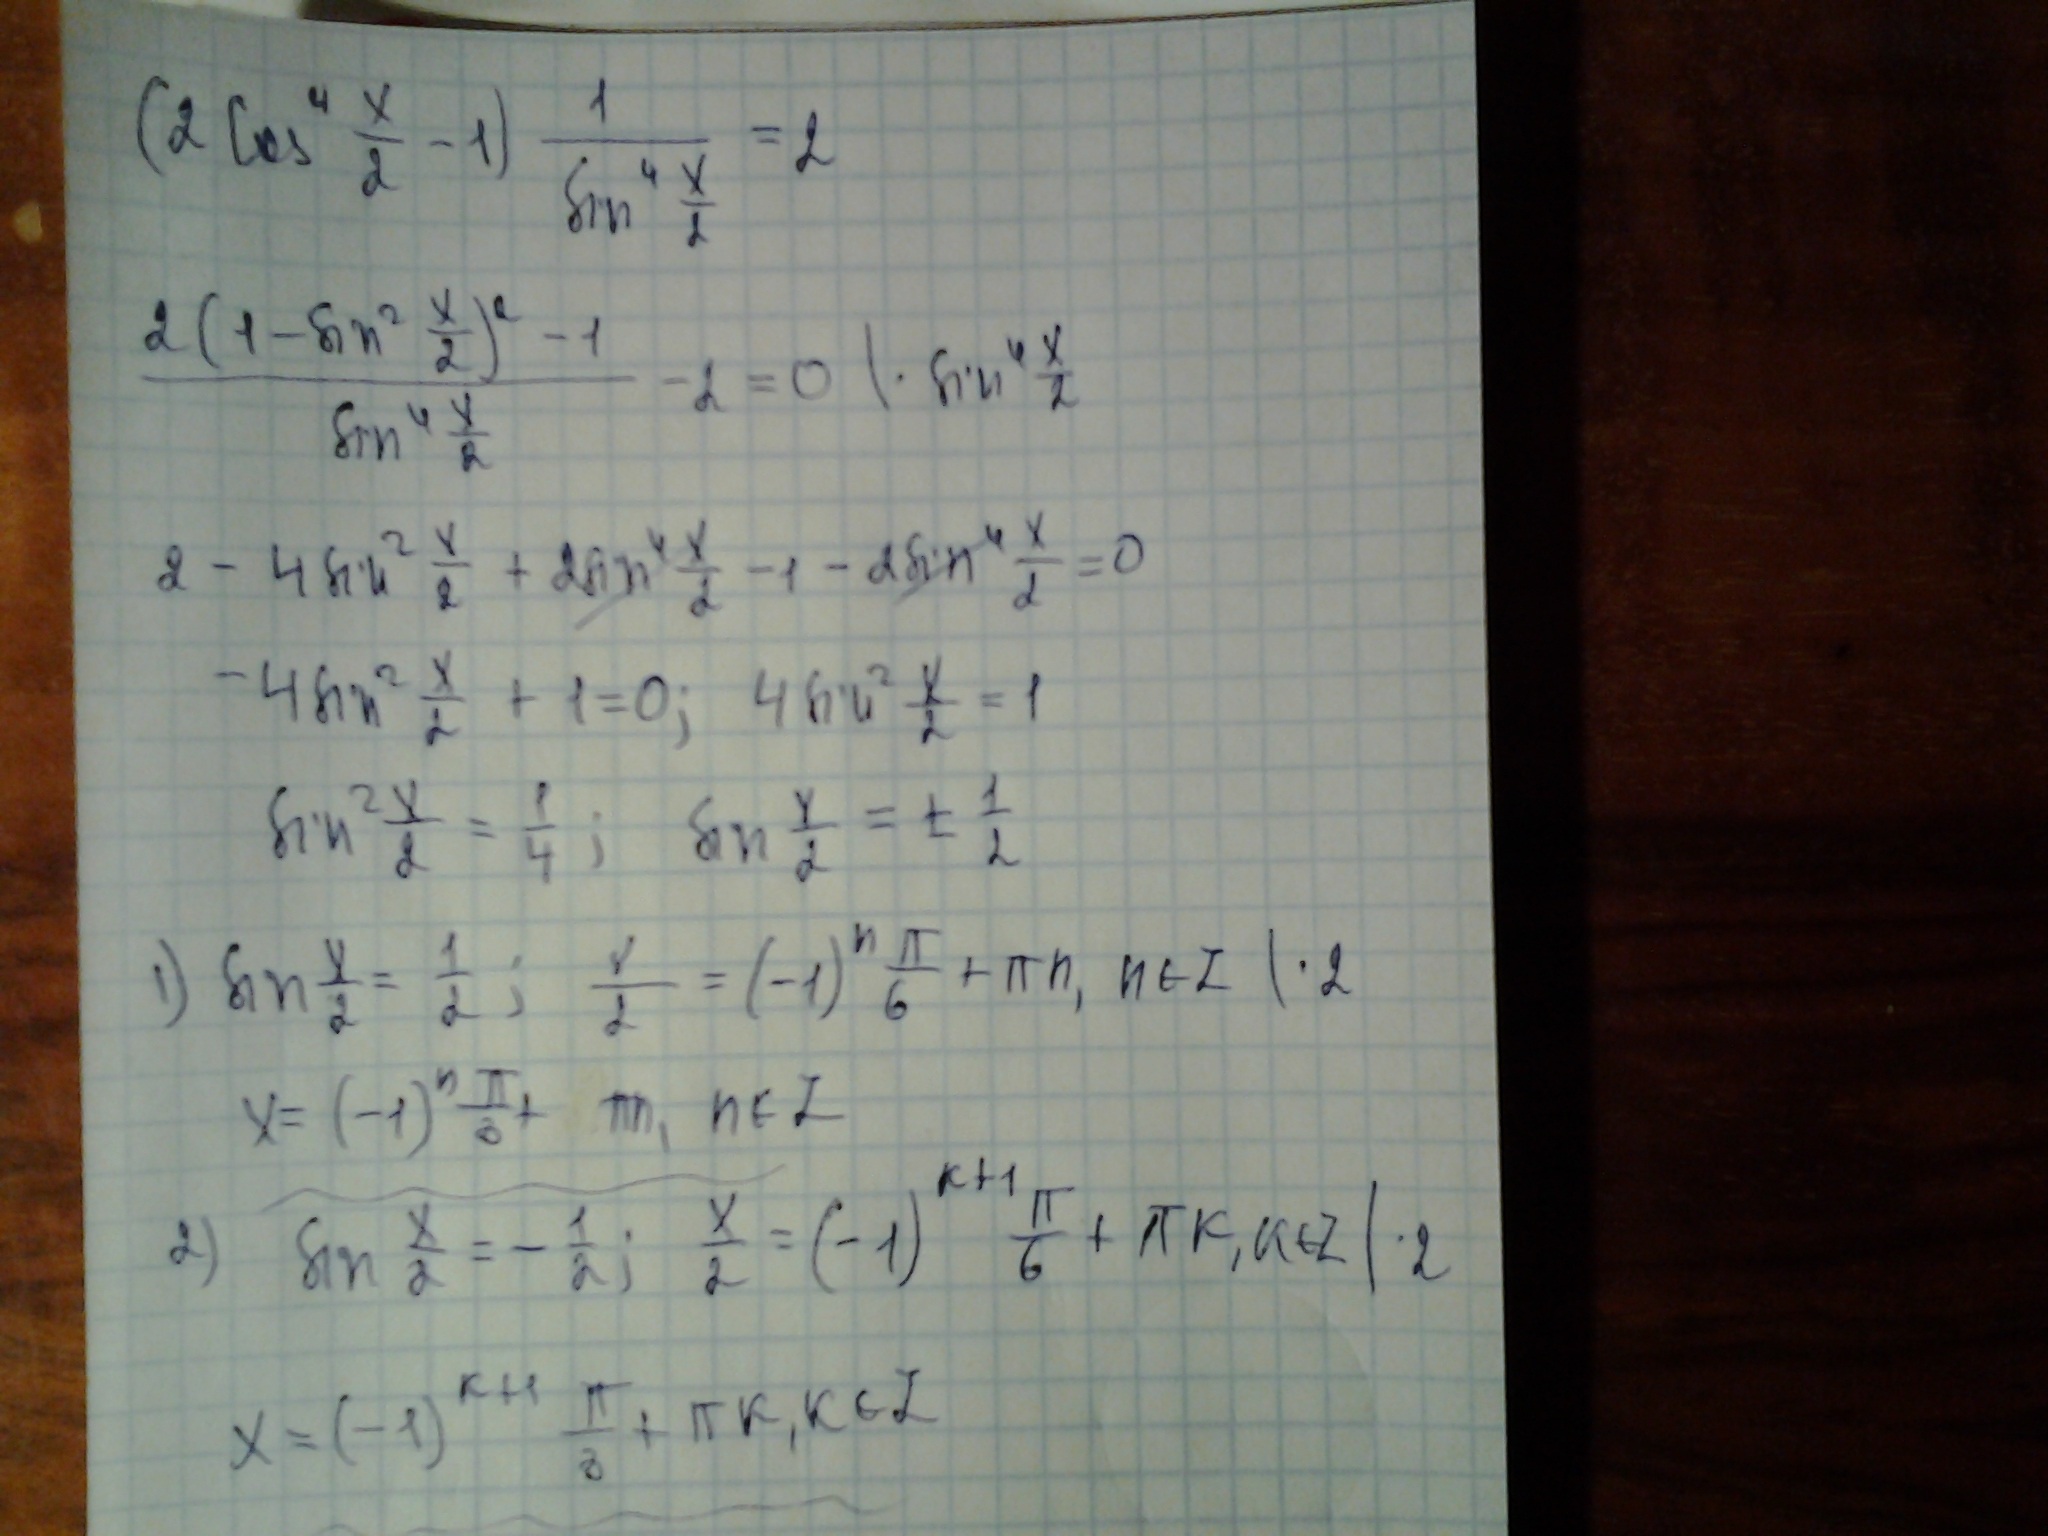 (2 cos⁴ x/2 - 1) 1/(sin⁴ x/2) = 2
(2(1 - sin² x/2)² - 1)/(sin⁴ x/2) - 2 = 0 | · sin⁴ x/2
2 - 4 sin² x/2 + 2sin⁴ x/2 - 1 - 2sin⁴ x/2 = 0
-4 sin² x/2 + 1 = 0; 4 sin² x/2 = 1
sin² x/2 = 1/4; sin x/2 = ± 1/2
1) sin x/2 = 1/2; x/2 = (-1)ⁿ π/6 + πn, n ∈ Z | · 2
x = (-1)ⁿ π/3 + πn, n ∈ Z
2) sin x/2 = - 1/2; x/2 = (-1)^(k+1) π/6 + πk, k ∈ Z | · 2
x = (-1)^(k+1) π/3 + πk, k ∈ Z